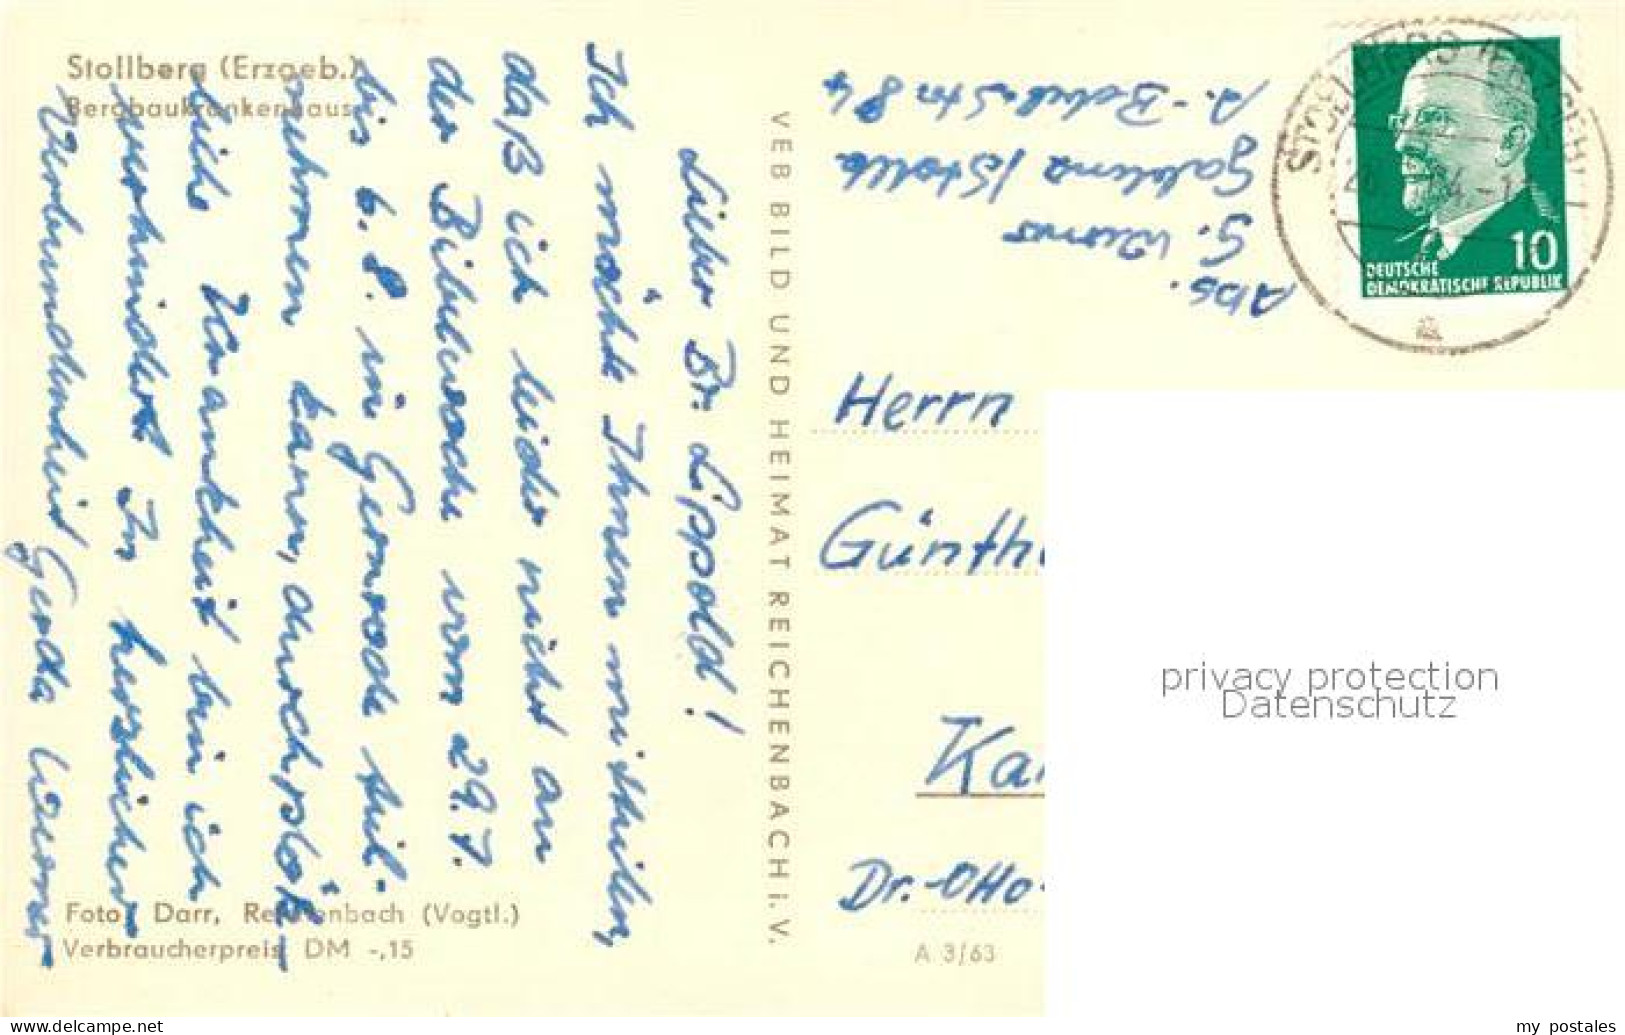 Stollberg (Erzgeb.)
Bergbaukrankenhaus
Lieber Br. Lippold!
Ich möchte Ihnen mitteilen,
daß ich leider nicht an
der Bibelwoche vom 29.7.
bis 6.8. in Gernrode teil-
nehmen kann, durch plötz-
liche Krankheit bin ich
verhindert. In herzlicher
Verbundenheit Gerda Werner
Foto: Darr, Reichenbach (Vogtl.)
Verbraucherpreis DM -,15
VEB BILD UND HEIMAT REICHENBACH i. V.
Abs.
G. Werner
/Stollb.
A.-Bebel-Str 84
STOLLBERG (ERZGEB)
10
DEUTSCHE
DEMOKRATISCHE REPUBLIK
Herrn
Günth
Ka
Dr.-Otto-
A 3/63
privacy protection
Datenschutz
www.delcampe.net
my_postales